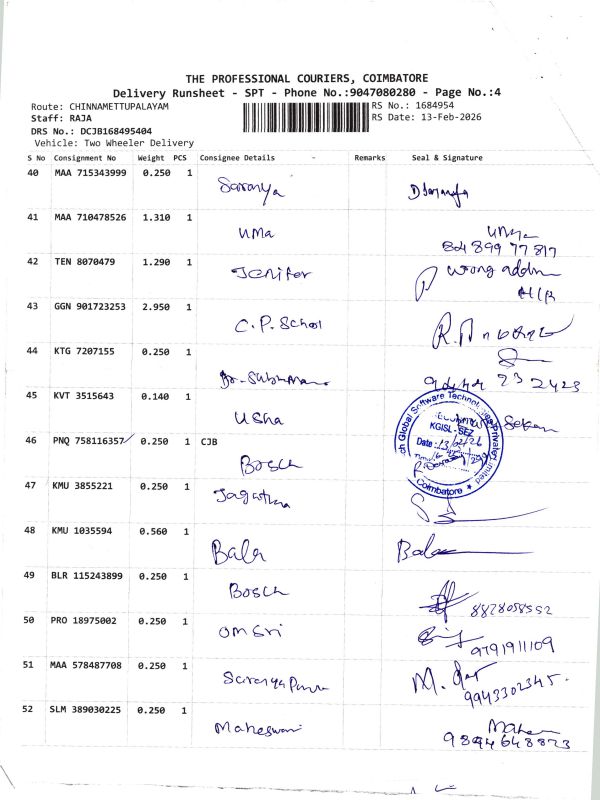 THE PROFESSIONAL COURIERS, COIMBATORE
Delivery Runsheet - SPT - Phone No.:9047080280 - Page No.:4
Route: CHINNAMETTUPALAYAM RS No.: 1684954
Staff: RAJA RS Date: 13-Feb-2026
DRS No.: DCJB168495404
Vehicle: Two Wheeler Delivery
S No Consignment No Weight PCS Consignee Details - Remarks Seal & Signature
40 MAA 715343999 0.250 1
Saranya
41 MAA 710478526 1.310 1
Uma
84 899 77 817
42 TEN 8070479 1.290 1
Jenifer wrong
43 GGN 901723253 2.950 1
C.P. School
44 KTG 7207155 0.250 1
45 KVT 3515643 0.140 1
Usha Sekar
46 PNQ 758116357 0.250 1 CJB
Bosch
Global Software Technologies Private Limited
KGISL-SEZ
Date: 13/02/26
Coimbatore
47 KMU 3855221 0.250 1
48 KMU 1035594 0.560 1
Bala Bala
49 BLR 115243899 0.250 1
Bosch 8828058552
50 PRO 18975002 0.250 1
Om Sri 9791911109
51 MAA 578487708 0.250 1
9943302345.
52 SLM 389030225 0.250 1
Maheswari
9894648823